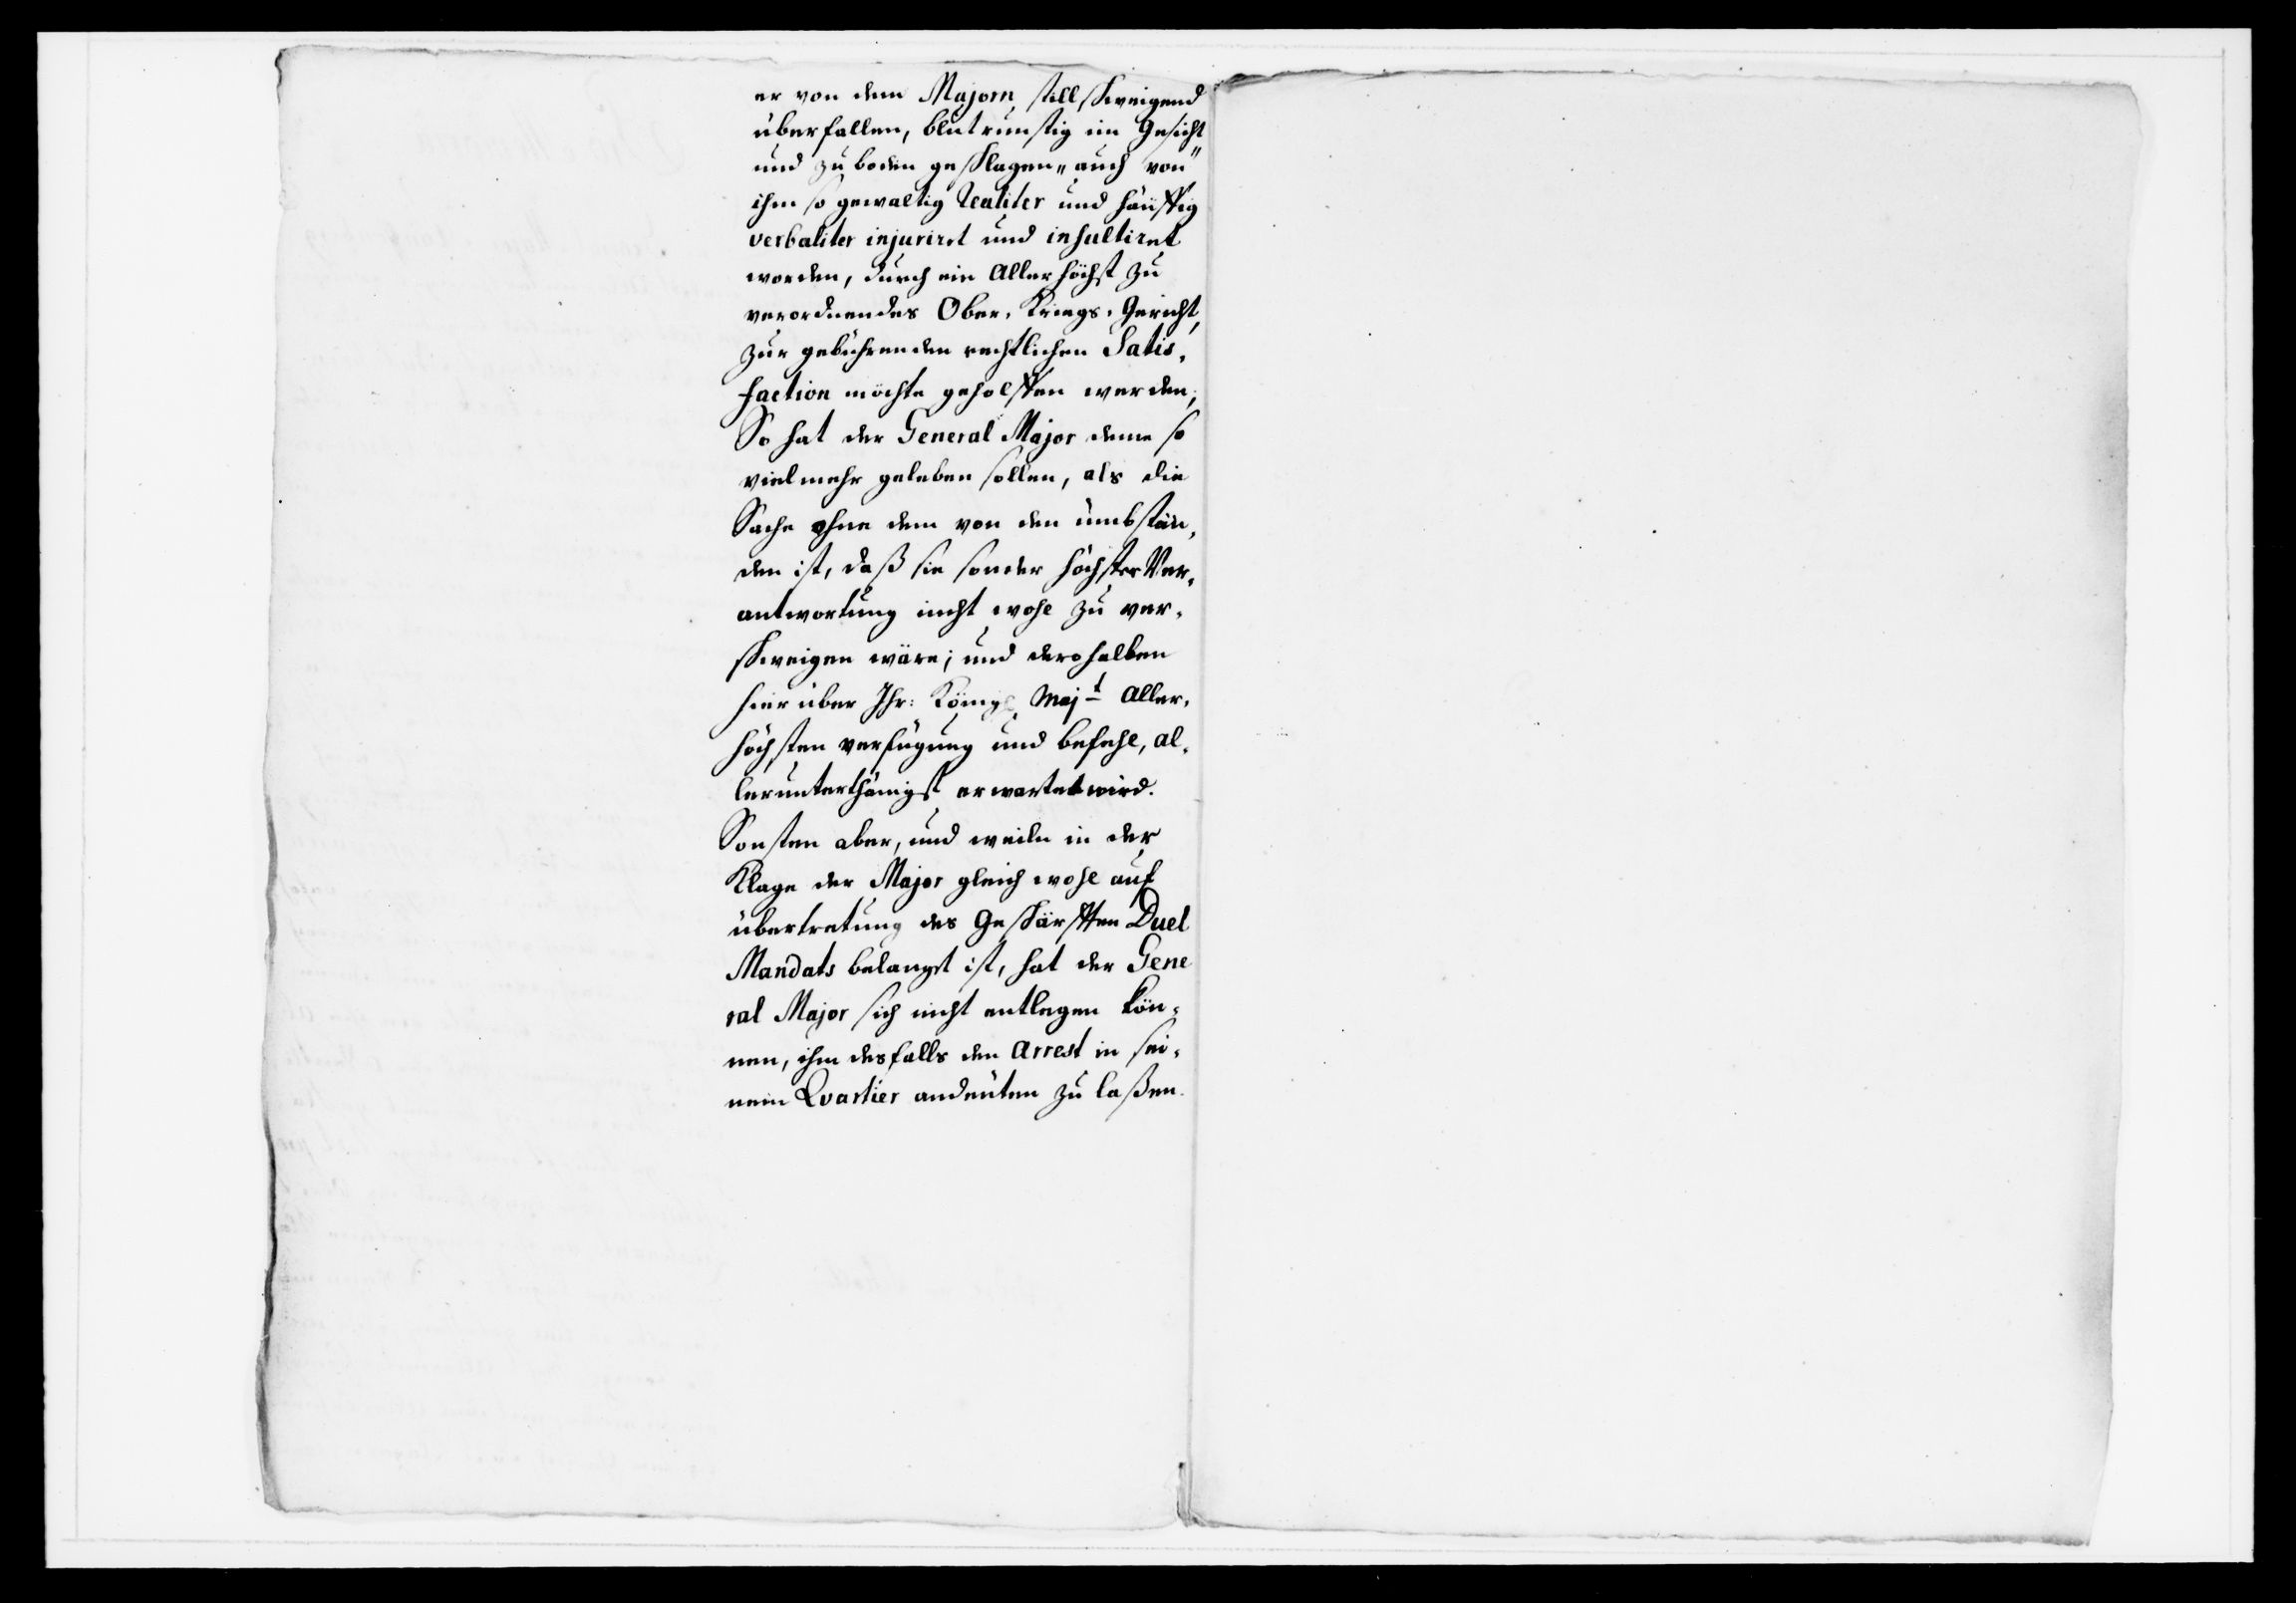 er von dem Majorn, stillschweigend
überfallen, blutrünstig im Gesicht
und zu boden geschlagen„ auch von"
ihm so gewaltig realiter und häuffig
verbaliter injuriret und insultiret
worden, durch ein Allerhöchst zu
verordnendes Ober-Kriegs-Gericht,
zur gebührenden rechtlichen Satis-
faction möchte geholffen werden;
So hat der General Major deme so
vielmehr geleben sollen, als die
Sache ohne dem von den ümbstän-
den ist, daß sie sonder höchster Ver-
antwortung nicht wohl zu ver-
schweigen wäre; und derohalben
hierüber Ihr: Königl. Majt Aller-
höchsten verfügung und befehl, al-
lerunterthänigst erwartet wird.
Sonsten aber, und weiln in der
Klage der Major gleichwohl auf
übertretung des Geschärfften Duel
Mandats belanget ist, hat der Gene
ral Major sich nicht entlegen kön-
nen, ihm desfalls den Arrest in sei-
nem Qvartier andeuten zu laßen.